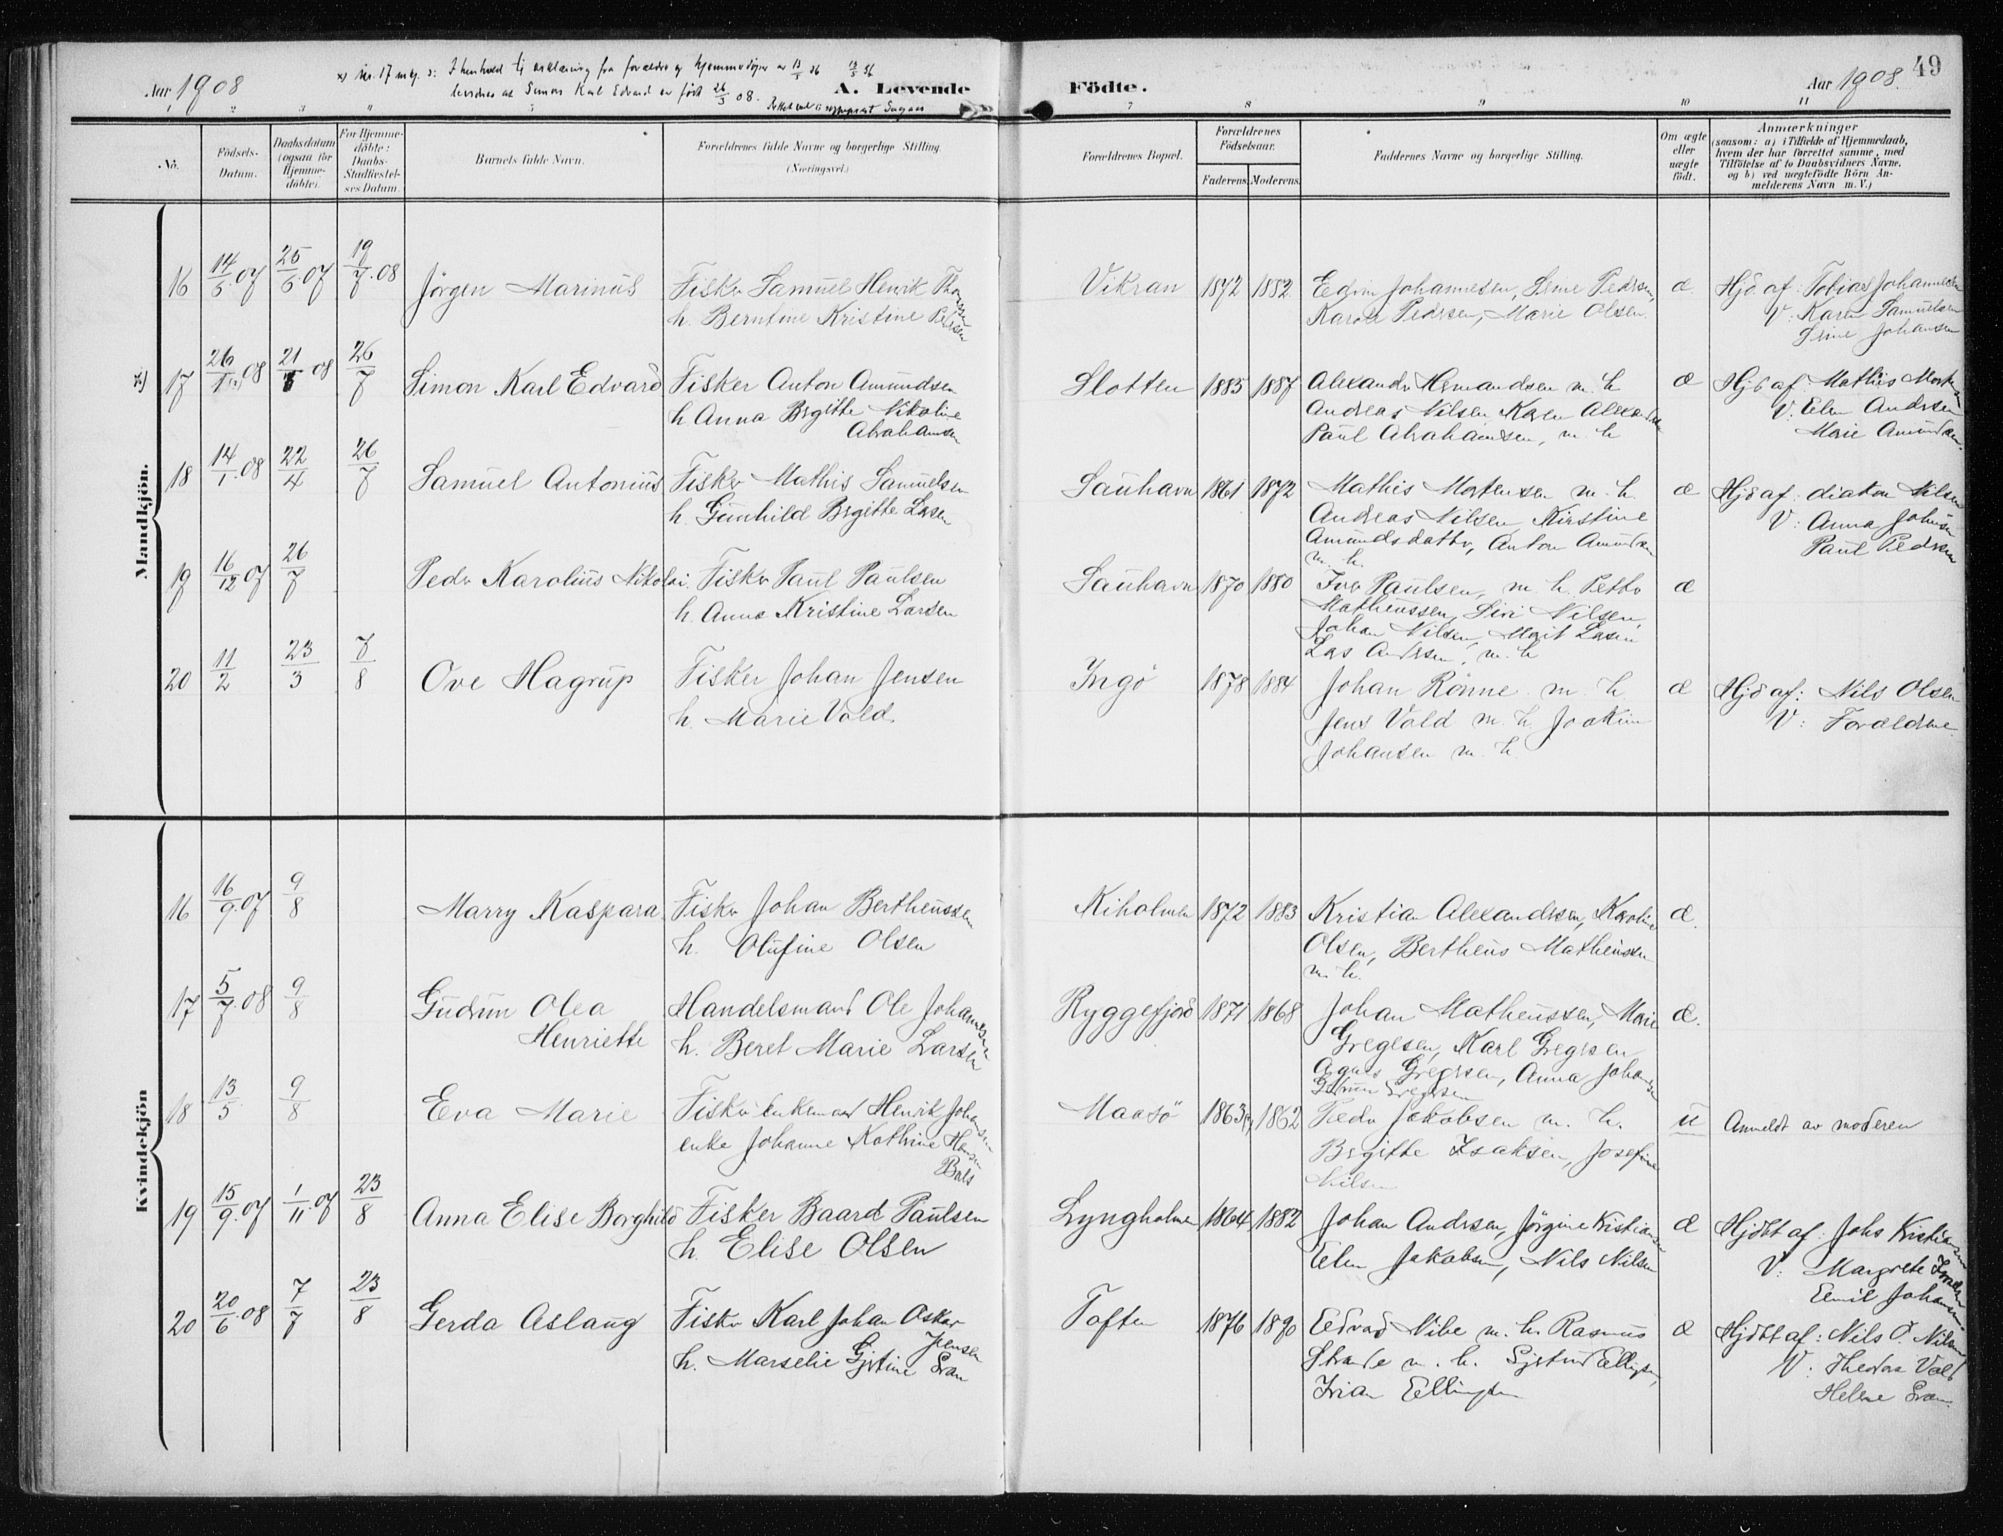 Aar 1908
x) No. 17 m.kj. : I henhold til erklæring fra forældre og hjemmedøper av 13/5 36
bevidnes at Simon Karl Edvard er født 26/3 08.
A. Levende
Födte.
Aar 1908.
49
No.
Födsels-Datum.
Daabsdatum (ogsaa for Hjemme-döbte).
For Hjemme-döbte: Daabs-Stadfæstel-ses Datum.
Barnets fulde Navn.
Forældrenes fulde Navne og borgerlige Stilling. (Næringsvei.)
Forældrenes Bopæl.
Forældrenes Födselsaar.
Faderens.
Moderens.
Faddernes Navne og borgerlige Stilling.
Om ægte eller uægte födt.
Anmærkninger
(saasom: a) i Tilfælde af Hjemmedaab, hvem der har forrettet samme, med Tilföielse af to Daabsvidners Navne, og b) ved uægtefödte Börn An-melderens Navn m. V.)
Mandkjön.
16 14/5 07 25/6 07 19/7 08 Jörgen Marinus Fisker Samuel Henrik Thomassen
h. Berntine Kristine Pedersen
Vikran 1872 1882 Edvin Johannesen, Sine Pedersen, æ Hjd af: Tobias Johannesen
Karen Pedersen, Marie Olsen. V: Karen Samuelsen
Sine Johansen
x) 17 26/1 08 21/3 08 26/7 Simon Karl Edvard Fisker Anton Amundsen
h Anna Brgitte Nikoline
Abrahamsen
Slotten 1885 1887 Alexander Hermandsen m. h æ Hjd af: Mathis Mortensen
Andreas Nilsen Karen Alexandersen V. Elen Andersen
Paul Abrahamsen, m h Marie Amundsen
18 14/1 08 22/4 26/7 Samuel Antonius Fisker Mathis Samuelsen
h. Gunhild Brgitte Larsen
Sauhavn 1861 1872 Mathis Mortensen m. h. æ Hjd af: diakon Nilsen
Andreas Nilsen, Kirstine V: Anna Johnsen
Amundsdatter, Anton Amundsen Paul Pedersen
m. h.
19 16/12 07 26/7 Peder Karolius Nikolai Fisker Paul Paulsen
h. Anna Kristine Larsen
Sauhavn 1870 1880 Iver Paulsen, m. h. Petter æ
Matheussen, Siri Nilsen,
Johan Nilsen, Marit Larsen
Lars Andersen, m. h
20 11/2 23/3 7/8 Ove Hagrup Fisker Johan Jensen
h. Marie Vald.
Ingö 1878 1884 Johan Rønne m. h æ Hjd af: Nils Olsen
Jens Vald m. h Joakim V: Forældrene
Johansen m. h.
Kvindekjön
16 16/9 07 9/8 Marry Kaspara Fisker Johan Bertheussen
h. Olufine Olsen
Kiholmen 1872 1883 Kristian Alexandersen, Karoline æ.
Olsen, Bertheus Matheussen
m. h.
17 5/7 08 9/8 Gudrun Olea Handelsmand Ole Johannesen
Henriette h. Beret Marie Larsen
Ryggefjord 1871 1868 Johan Matheussen, Marie æ.
Gregesen, Karl Gregersen
Agnes Gregersen, Anna Johansen
Gudrun Gregersen
18 13/5 9/8 Eva Marie Fisker enkemand Henrik Johansen
enke Johanne Kathrine Hansen
Bals
Maasö 1863 1862 Peder Jakobsen m. h. u Anmeldt av moderen
Brgitte Isaksen, Josefine
Nilsen
19 15/9 07 1/11 07 23/8 Anna Elise Borghild Fisker Baard Paulsen
h. Elise Olsen
Lyngholmen 1864 1882 Johan Andersen, Jörgine Kristiansen æ Hjdbt af: Johs Kristiansen
Elen Jakobsen, Nils Nilsen V: Margrete
Emil Johansen
20 20/6 08 7/7 23/8 Gerda Aslaug Fisker Karl Johan Oskar
Jensen
h. Marselie Gjertine Svan
Toften 1876 1890 Edvard Nibe m. h. Rasmus æ Hjdbt af: Nils O. Nilsen
Strande m. h. Sjertrud Ellingsen, V: Thedora Vald
Ivian Ellingsen Helene Svan